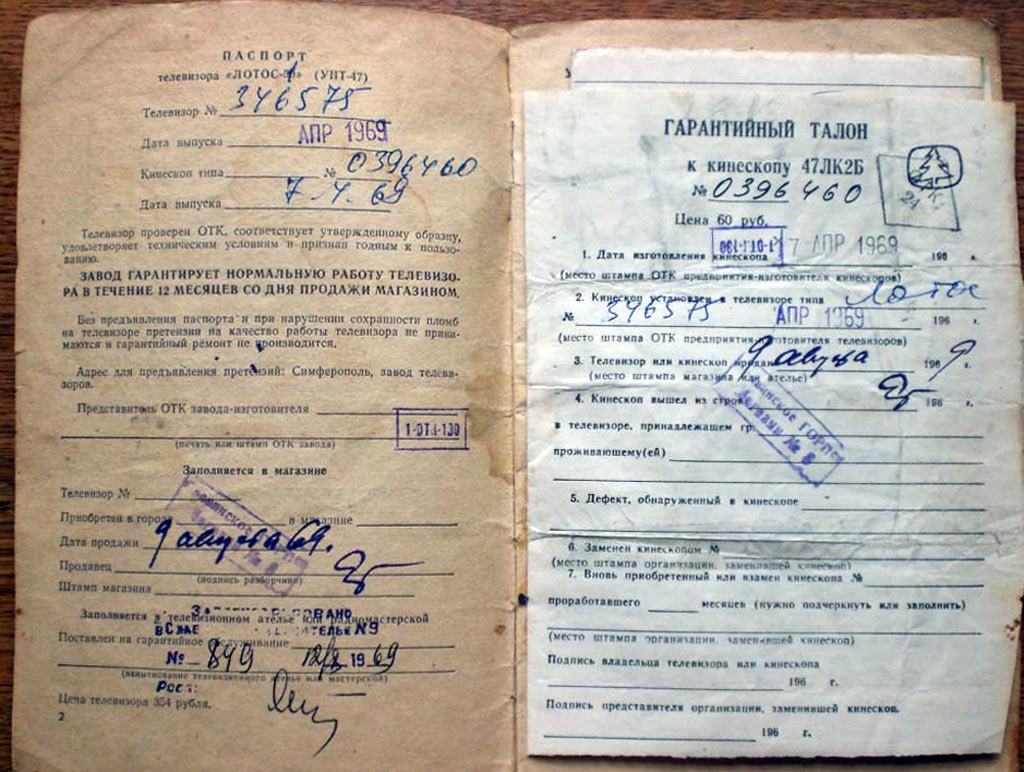 ПАСПОРТ
телевизора «ЛОТОС-» (УНТ-47)
Телевизор № 346575
Дата выпуска АПР 1969
Кинескоп типа № 0396460
Дата выпуска 7.4.69
Телевизор проверен ОТК, соответствует утвержденному образцу,
удовлетворяет техническим условиям и признан годным к пользо-
ванию.
ЗАВОД ГАРАНТИРУЕТ НОРМАЛЬНУЮ РАБОТУ ТЕЛЕВИЗО-
РА В ТЕЧЕНИЕ 12 МЕСЯЦЕВ СО ДНЯ ПРОДАЖИ МАГАЗИНОМ.
Без предъявления паспорта и при нарушении сохранности пломб
на телевизоре претензии на качество работы телевизора не прини-
маются и гарантийный ремонт не производится.
Адрес для предъявления претензий: Симферополь, завод телеви-
зоров.
Представитель ОТК завода-изготовителя
1-ОТК-130
(печать или штамп ОТК завода)
Заполняется в магазине
Телевизор №
Приобретен в городе в магазине
Дата продажи 9 августа 69.
Продавец
(подпись разборчиво)
Штамп магазина
Заполняется в телевизионном ателье или радиомастерской
Поставлен на гарантийное обслуживание
№ 849 12/8 1969
(наименование телевизионного ателье или мастерской)
Цена телевизора 354 рубля.
2
ГАРАНТИЙНЫЙ ТАЛОН
к кинескопу 47ЛК2Б
№ 0396460
24
Цена 60 руб.
1-ОТК-130 7 АПР 1969
1. Дата изготовления кинескопа 196 г.
(место штампа ОТК предприятия-изготовителя кинескопов)
2. Кинескоп установлен в телевизоре типа Лотос
№ 346575 АПР 1969 196 г.
(место штампа ОТК предприятия-изготовителя телевизоров)
3. Телевизор или кинескоп продан 9 августа 1969 г.
(место штампа магазина или ателье)
4. Кинескоп вышел из строя 196 г.
в телевизоре, принадлежащем гр.
проживающему(ей)
5. Дефект, обнаруженный в кинескопе
6. Заменен кинескопом №
(место штампа организации, заменившей кинескоп)
7. Вновь приобретенный или взамен кинескопа №
проработавшего месяцев (нужно подчеркнуть или заполнить)
(место штампа организации, заменившей кинескоп)
Подпись владельца телевизора или кинескопа
196 г.
Подпись представителя организации, заменившей кинескоп.
196 г.